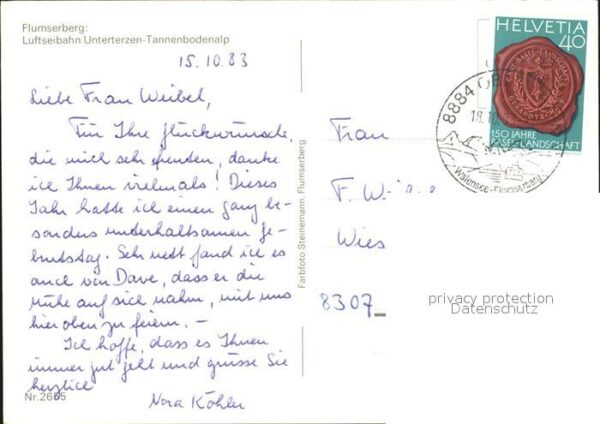 Flumserberg:
Luftseilbahn Unterterzen-Tannenbodenalp
15.10.83
Liebe Frau Weibel,
Für Ihre Glückwünsche,
die mich sehr freuten, danke
ich Ihnen vielmals! Dieses
Jahr hatte ich einen ganz be-
sonders unterhaltsamen Ge-
burtstag. Sehr nett fand ich es
auch von Dave, dass er die
Mühe auf sich nahm, mit uns
hier oben zu feiern. –
Ich hoffe, dass es Ihnen
immer gut geht und grüsse Sie
herzlich
Nora Köhler
Nr. 2665
Farbfoto Steinemann, Flumserberg
HELVETIA
40
150 JAHRE
BASEL-LANDSCHAFT
8884
18.10.
Walensee-Flumserberg
Frau
F. W
Wies
8307
privacy protection
Datenschutz